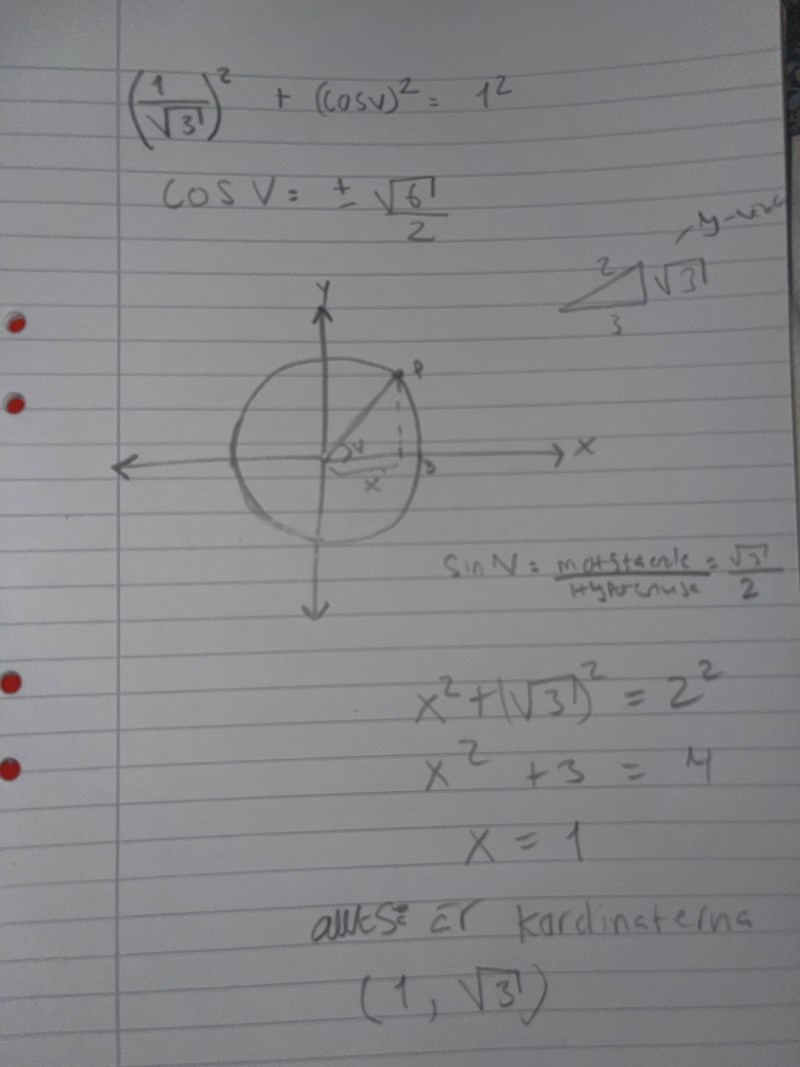 (1/√3)² + (cosv)² = 1²
cos v = ± √6/2
y-
2 √3
3
y
P
v
x
x
3
sin v = motstående/Hypotenusa = √3/2
x² + (√3)² = 2²
x² + 3 = 4
x = 1
är kordinaterna
(1, √3)